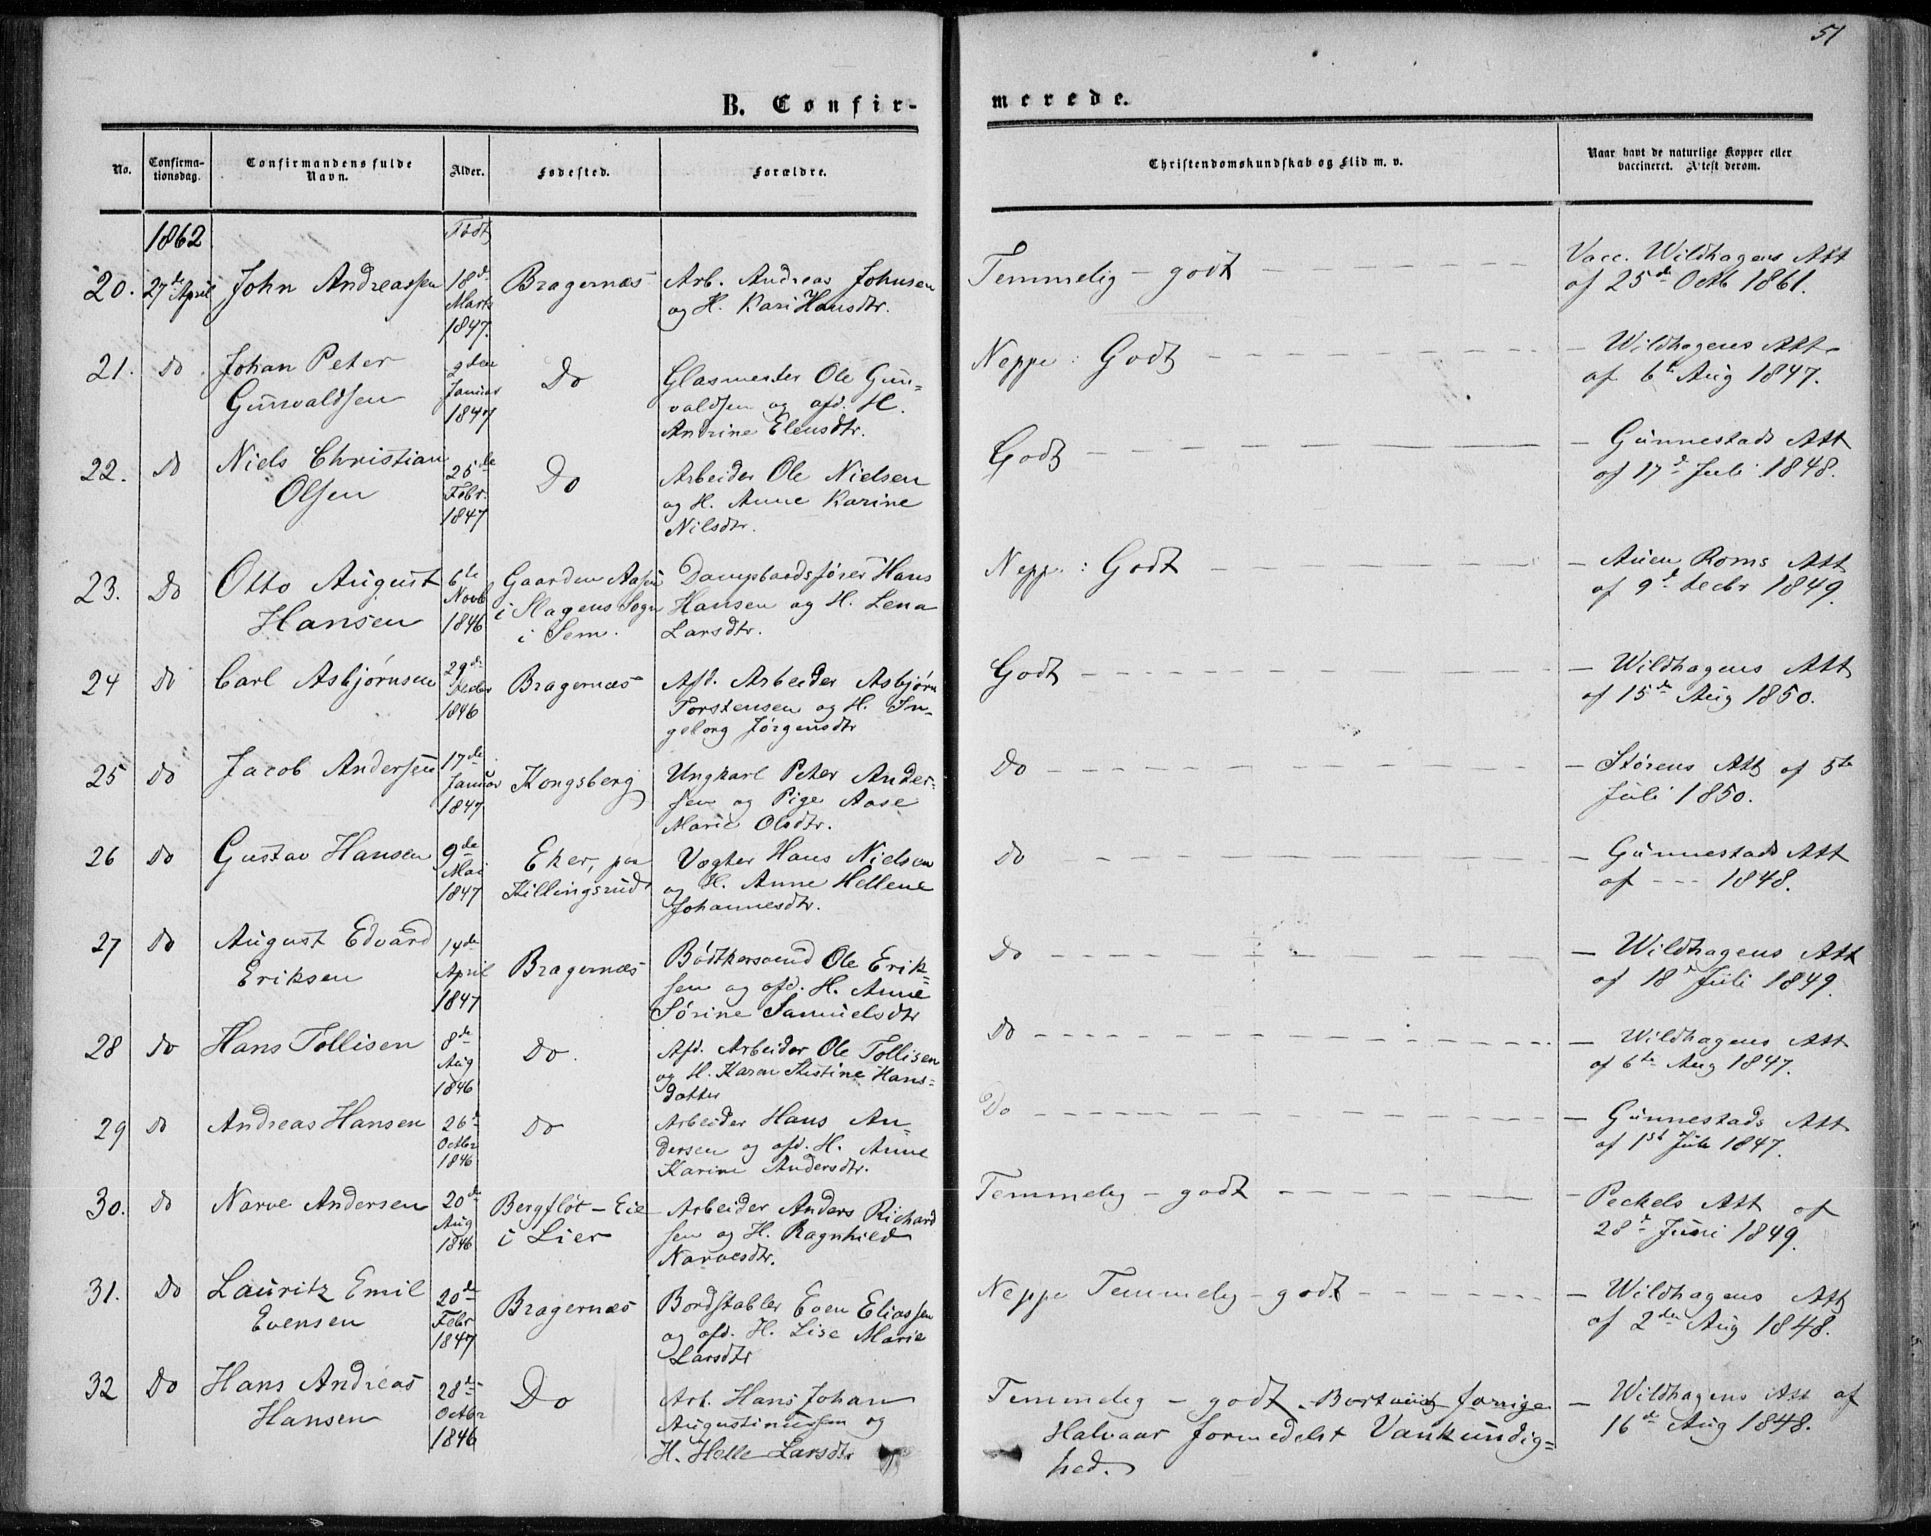 51
B. Confir-
merede.
No.
Confirma-
tionsdag.
Confirmandens fulde
Navn.
Alder.
Fødested.
Forældre.
Christendomskundskab og Flid m. v.
Naar havt de naturlige Kopper eller
vaccineret. Attest derom.
1862
Födt
20. 27de April John Andreassen 18de Marts 1847. Bragernæs Arb. Andreas Johnsen
og H. Kari Hansdtr.
Temmelig - godt
Vacc. Wildhagens Att
af 25de Octb 1861.
21. Do Johan Peter
Gunvaldsen
9den Januar 1847
Do
Glasmester Ole Gun-
valdsen og afd. H.
Andrine Elensdtr.
Neppe: Godt
- Wildhagens Att
af 6te Aug 1847.
22. Do Niels Christian
Olsen
25de Febr. 1847
Do
Arbeider Ole Nielsen
og H. Anne Karine
Nilsdtr.
Godt
- Gunnestads Att
af 17de Juli 1848.
23. Do Otto August
Hansen
6te Novb 1846
Gaarden Aasen
i Slagens Sogn
i Sem.
Dampbaadsfører Hans
Hansen og H. Lena
Larsdtr.
Nepp: Godt
- Auen Roms Att
af 9de Decbr 1849.
24 Do Carl Asbjørnsen
29de Decbr 1846
Bragernæs
Afd. Arbeider Asbjørn
Torstensen og H. In-
geborg Jørgensdtr
Godt
- Wildhagens Att
af 15de Aug 1850.
25 Do Jacob Andersen
17de Januar 1847
Kongsberg
Ungkarl Peter Ander-
sen og Pige Aase
Marie Olsdtr.
Do
- Størens Att af 5te
Juli 1850.
26 Do Gustav Hansen
9de Mai 1847
Eker, paa
Killingsrud
Vægter Hans Nielsen
og H. Anne Hellene
Johannesdtr.
Do
- Gunnestads Att
af --- 1848.
27 Do August Edvard
Eriksen
14de April 1847
Bragernæs
Bödtkersvend Ole Erik-
sen og afd. H. Anne
Sörine Samuelsdtr
Do
- Wildhagens Att
af 18de Juli 1849.
28 Do Hans Tollisen
8de Aug 1846
Do.
Afd. Arbeider Ole Tollisen
og H. Karen Kistine Hans-
datter
Do
- Wildhagens Att
af 6te Aug 1847.
29 Do Andreas Hansen
26de Octbr 1846
Do
Arbeider Hans An-
dersen og afd. H. Anne
Karine Andersdtr.
Do
- Gunnestads Att
af 1st Juli 1847.
30. Do Narve Andersen
20de Aug 1846
Bergflöt - Eie
i Lier
Arbeider Anders Richard
sen og H. Ragnhild
Narvesdtr.
Temmelig - godt
- Peckels Att af
28de Juni 1849.
31. Do Lauritz Emil
Evensen
20de Febr 1847
Bragernæs
Bordstabler Even Eliassen
og afd. H. Lise Marie
Larsdtr
Neppe Temmelig - godt
- Wildhagens Att
af 2den Aug 1848.
32 Do Hans Andreas
Hansen
28de Octbr 1846
Do
Arb. Hans Johan
Augustinussen og
H. Helle Larsdtr
Temmelig - godt. Bortviist forrige
Halvaar formedelst Vankundig-
hed.
- Wildhagens Att af
16de Aug 1848.